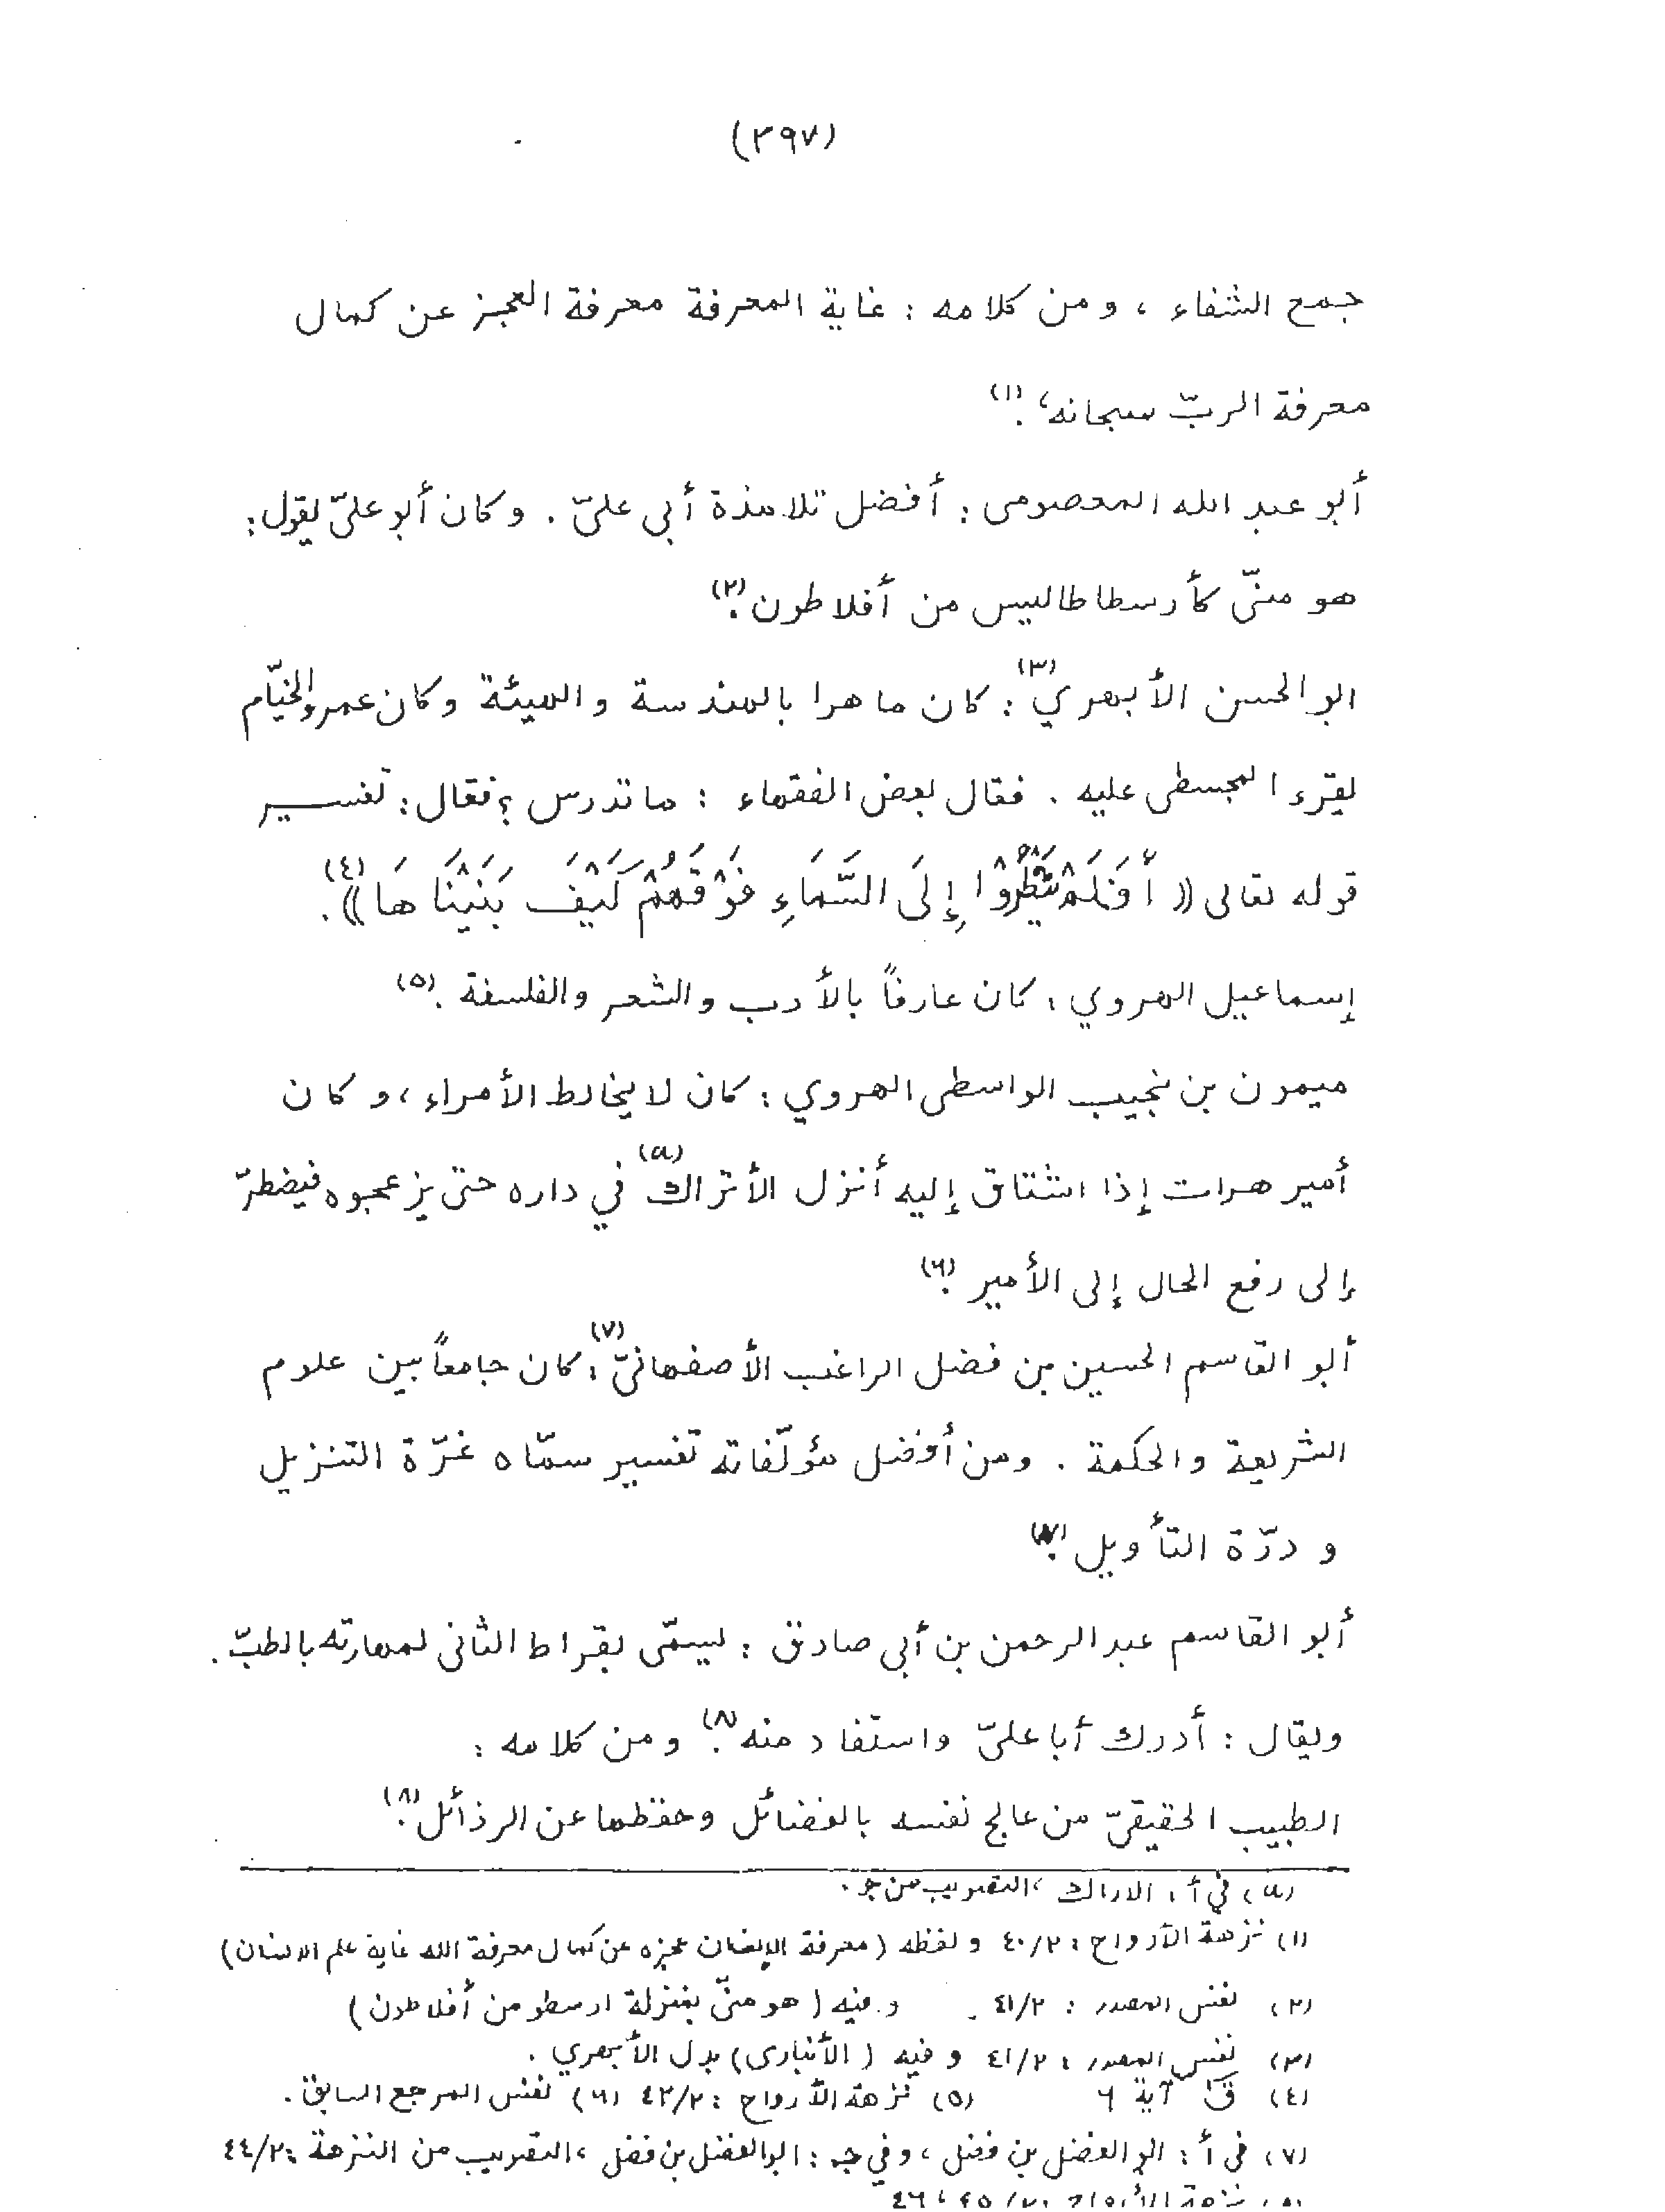 (٣٩٧)
جمع الشفاء ، ومن كلامه : غاية المعرفة معرفة العجز عن كمال
معرفة الربّ سبحانه، . (١)
أبو عبد الله المعصومى : أفضل تلامذة أبي علىّ . وكان أبو علىّ يقول :
هو منّى كأرسطاطاليس من أفلاطون . (٢)
ابو الحسن الأبهري (٣) : كان ماهرا بالهندسة والهيئة وكان عمرو الخيّام
يقرء المجسطى عليه . فقال بعض الفقهاء : ما تدرس ؟ فقال : تفسير
قوله تعالى (( أَفَلَمْ يَنْظُرُوْا إِلَى السَّمَاءِ فَوْقَهُمْ كَيْفَ بَنَيْنَا هَا )) . (٤)
إسماعيل الهروي : كان عارفاً بالأدب والشعر والفلسفة . (٥)
ميمون بن نجيب الواسطى الهروي : كان لا يخالط الأمراء ، وكان
أمير هرات إذا اشتاق إليه أنزل الأتراك (a) في داره حتى يزعجوه فيضطرّ
إلى رفع الحال إلى الأمير . (٦)
أبو القاسم الحسين بن فضل الراغب الأصفهانىّ (٧) : كان جامعاً بين علوم
الشريعة والحكمة . ومن أفضل مؤلّفاته تفسير سمّاه غرّة التنزيل
و درّة التأويل .
أبو القاسم عبد الرحمن بن أبي صادق : يسمّى بقراط الثانى لمهارته بالطبّ .
ويقال : أدرك أبا علىّ واستفاد منه . (٨) ومن كلامه :
الطبيب الحقيقىّ من عالج نفسه بالفضائل وحفظها عن الرذائل .
(a) في أ : الاراك ، التصويب من جـ .
(١) نزهة الأرواح : ٤٠/٢ ولفظه (معرفة الإنسان عجزه عن كمال معرفة الله غاية علم الانسان)
(٢) نفس المصدر : ٤١/٢ . وفيه (هو منّى بمنزلة ارسطو من أفلاطون)
(٣) نفس المصدر : ٤١/٢ وفيه (الأنبارى) بدل الأبهري .
(٤) قٓ آية ٦ (٥) نزهة الأرواح : ٤٣/٢ (٦) نفس المرجع السابق .
(٧) في أ : ابو الفضل بن فضل ، وفي جـ : ابو الفضل بن فضل ، التصويب من النزهة : ٤٤/٢